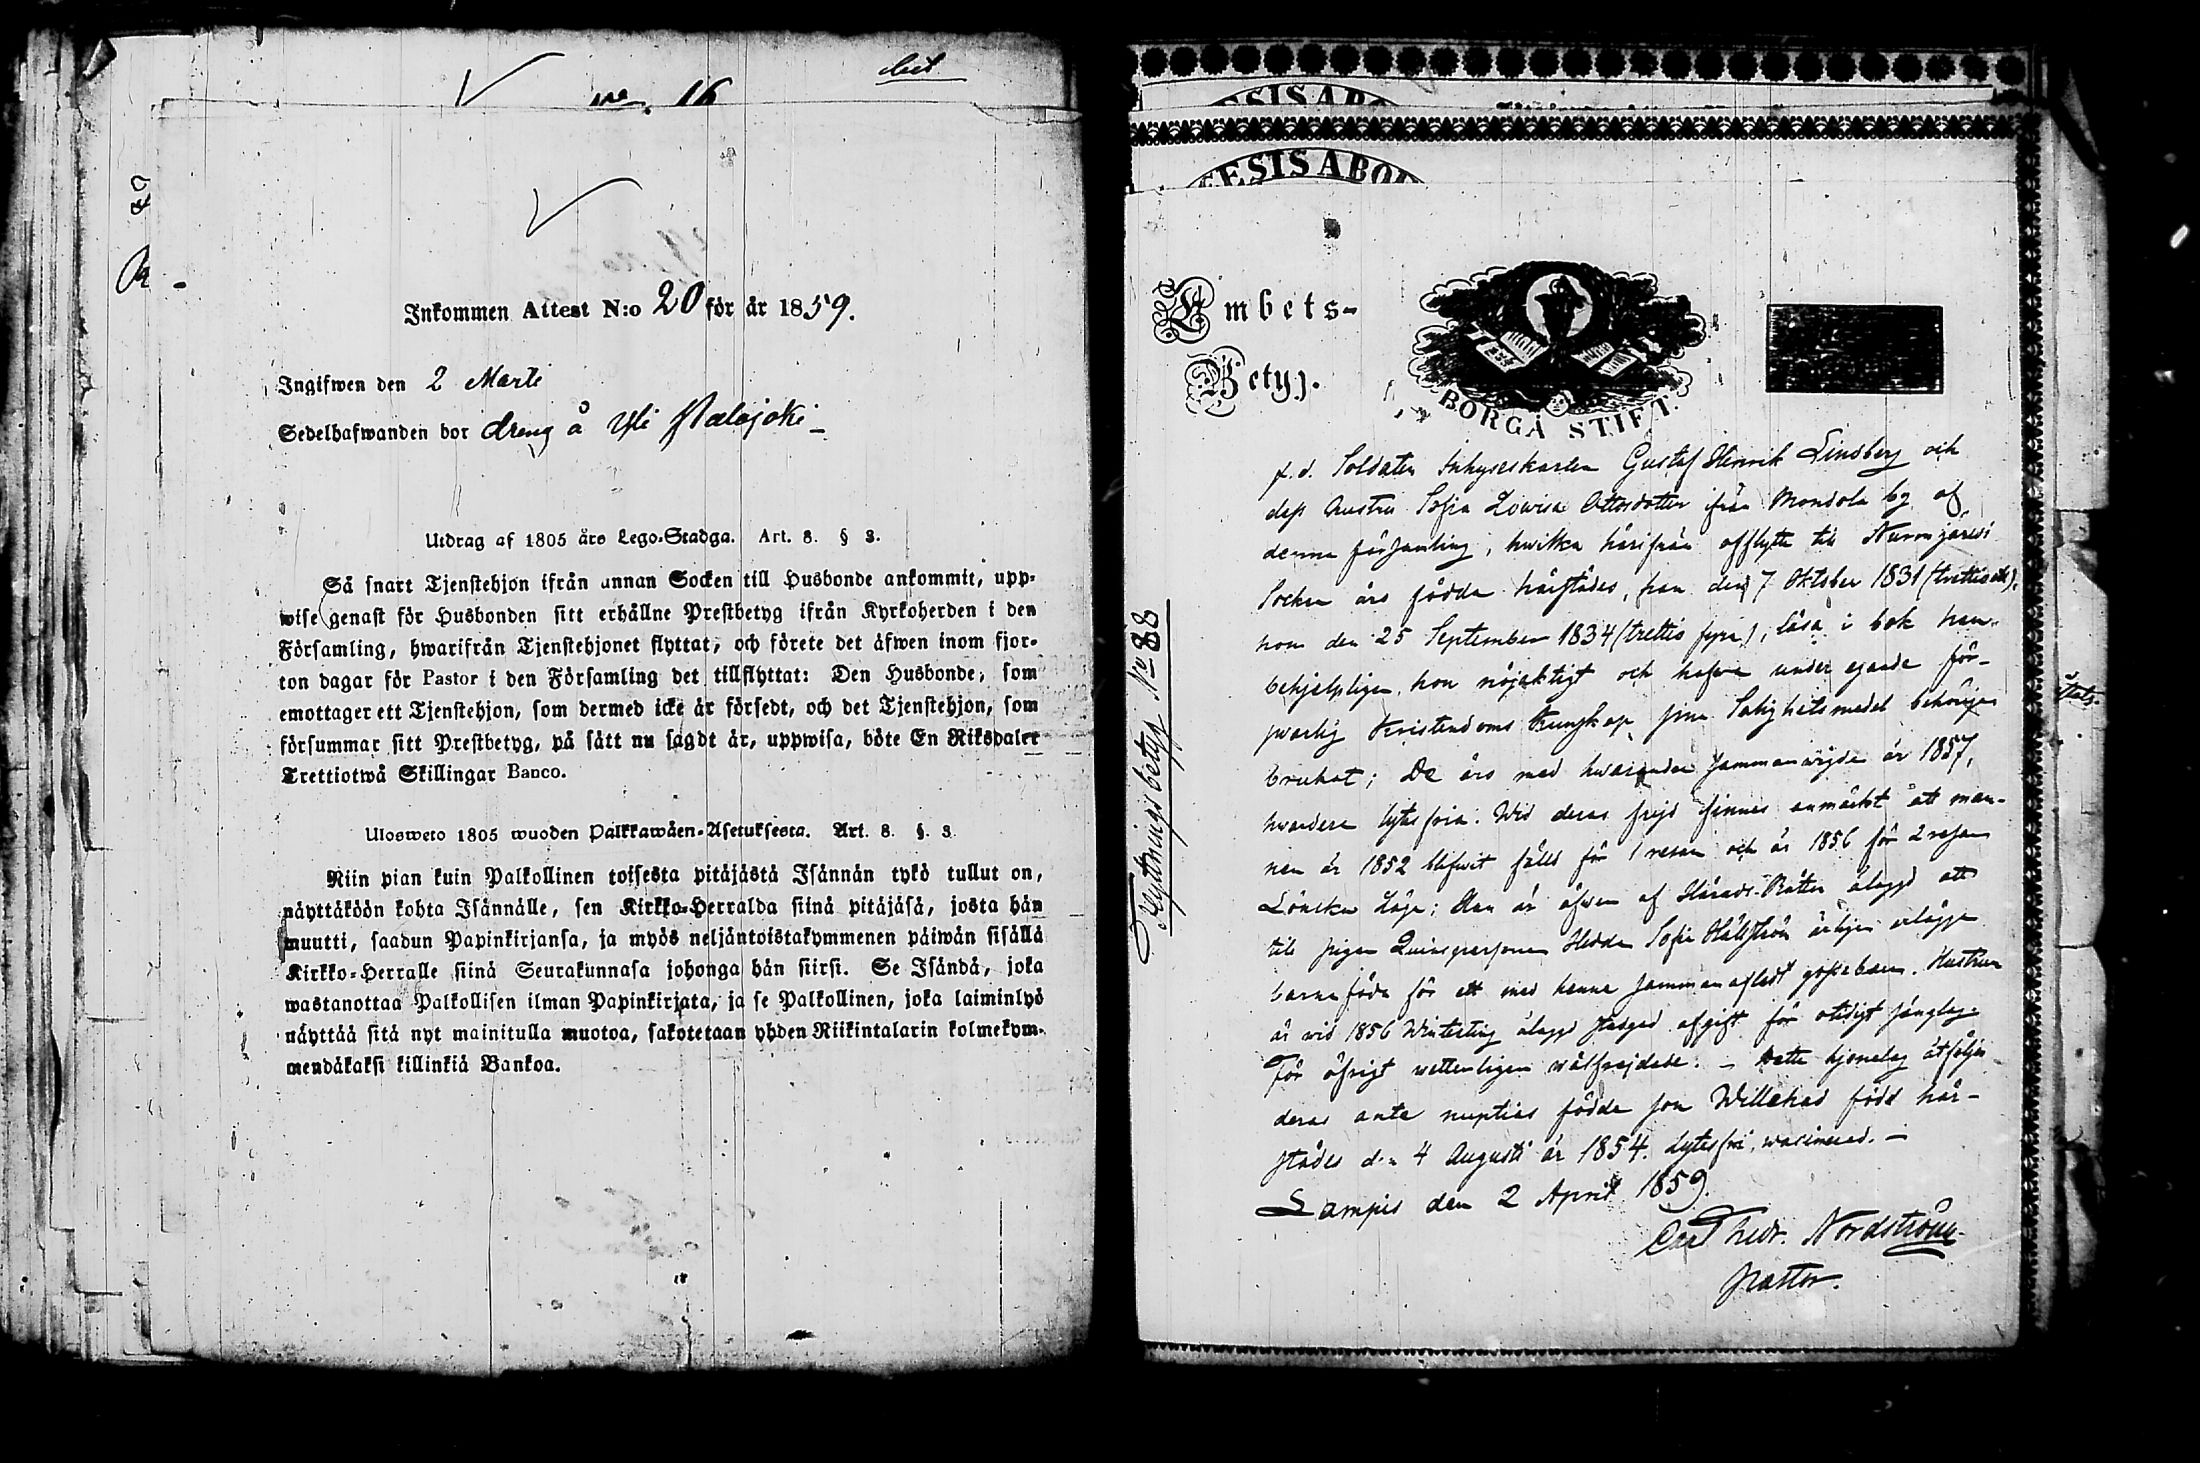 No. 16
Inkommen Attest N:o 20 för år 1859.
Ingifwen den 2 Marti
Sedelhafwanden bor dreng å Yli Palojoki
Utdrag af 1805 års Lego-Stadga. Art. 8. § 3.
Så snart Tjenstehjon ifrån annan Socken till Husbonde ankommit, upp-
wise genast för Husbonden sitt erhållne Prestbetyg ifrån Kyrkoherden i den
Församling, hwarifrån Tjenstehjonet flyttat, och förete det äfwen inom fjor-
ton dagar för Pastor i den Församling det tillflyttat: Den Husbonde, som
emottager ett Tjenstehjon, som dermed icke är försedt, och det Tjenstehjon, som
försummar sitt Prestbetyg, på sätt nu sagdt är, uppwisa, böte En Riksdaler
Trettiotwå Skillingar Banco.
Ulosweto 1805 wuoden Palkkawäen-Asetuksesta. Art. 8. §. 3
Niin pian kuin Palkollinen toisesta pitäjästä Isännän tykö tullut on,
näyttäköön kohta Isännälle, sen Kirkko-Herralda siinä pitäjäsä, josta hän
muutti, saadun Papinkirjansa, ja myös neljäntoistakymmenen päiwän sisällä
Kirkko-Herralle siinä Seurakunnasa johonga hän siirsi. Se Isändä, joka
wastanottaa Palkollisen ilman Papinkirjata, ja se Palkollinen, joka laiminlyö
näyttää sitä nyt mainitulla muotoa, sakotetaan yhden Riikintalarin kolmekym-
mendäkaksi killinkiä Bankoa.
ESIS ABO
Embets-
Betyg.
BORGÅ STIFT.
Flyttningsbetyg No 88
f.d. Soldaten Inhyseskarlen Gustaf Henrik Lindberg och
dess hustru Sofia Lowisa Ottosdotter ifrån Mondola by af
denna församling, hwilka härifrån afflytte till Nurmijärwi
Socken äro födda härstädes, han den 7 Oktober 1831 (trettioett),
hon den 25 September 1834 (trettio fyra), läsa i bok han
behjelpligen, hon nöjaktigt och hafwa under egande för-
swarlig Kristendoms Kunskap sina Salighetsmedel behörigen
brukat; De äro med hwarandra sammanwigde år 1857,
hwardera lytesfria. Wid deras frejd finnes anmärkt att man-
nen år 1852 blifwit fälld för 1 resan och år 1856 för 2 resan
Lönska läge; Han är äfwen af Härads-Rätten ålaggd att
till pigan Qvinspersonen Hedda Sofia Hällström årligen erlägga
barnaföda för ett med henne sammanafladt gossebarn. Hustrun
är wid 1856 Winterting ålaggd stadgad afgift för otidigt sänglag.
För öfrigt wetterligen wälfrejdade. — Detta hjonelag åtföljer
deras ante nuptias födda son Willehad född här-
städes den 4 Augusti år 1854. Lytesfri, waccinerad. —
Lampis den 2 April 1859.
Carl Thedr. Nordström
Pastor.